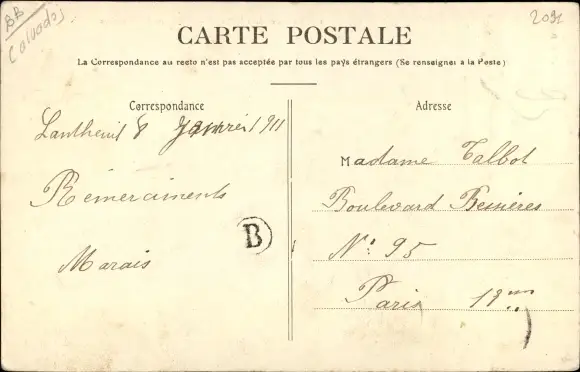 BB
Calvados
2091
CARTE POSTALE
La Correspondance au recto n'est pas acceptée par tous les pays étrangers (Se renseigner à la Poste)
Correspondance
Lantheuil 8 Janvier 1911
Rémerciments
Marais
B
Adresse
Madame Talbot
Boulevard Bessières
N°: 95
Paris 18me